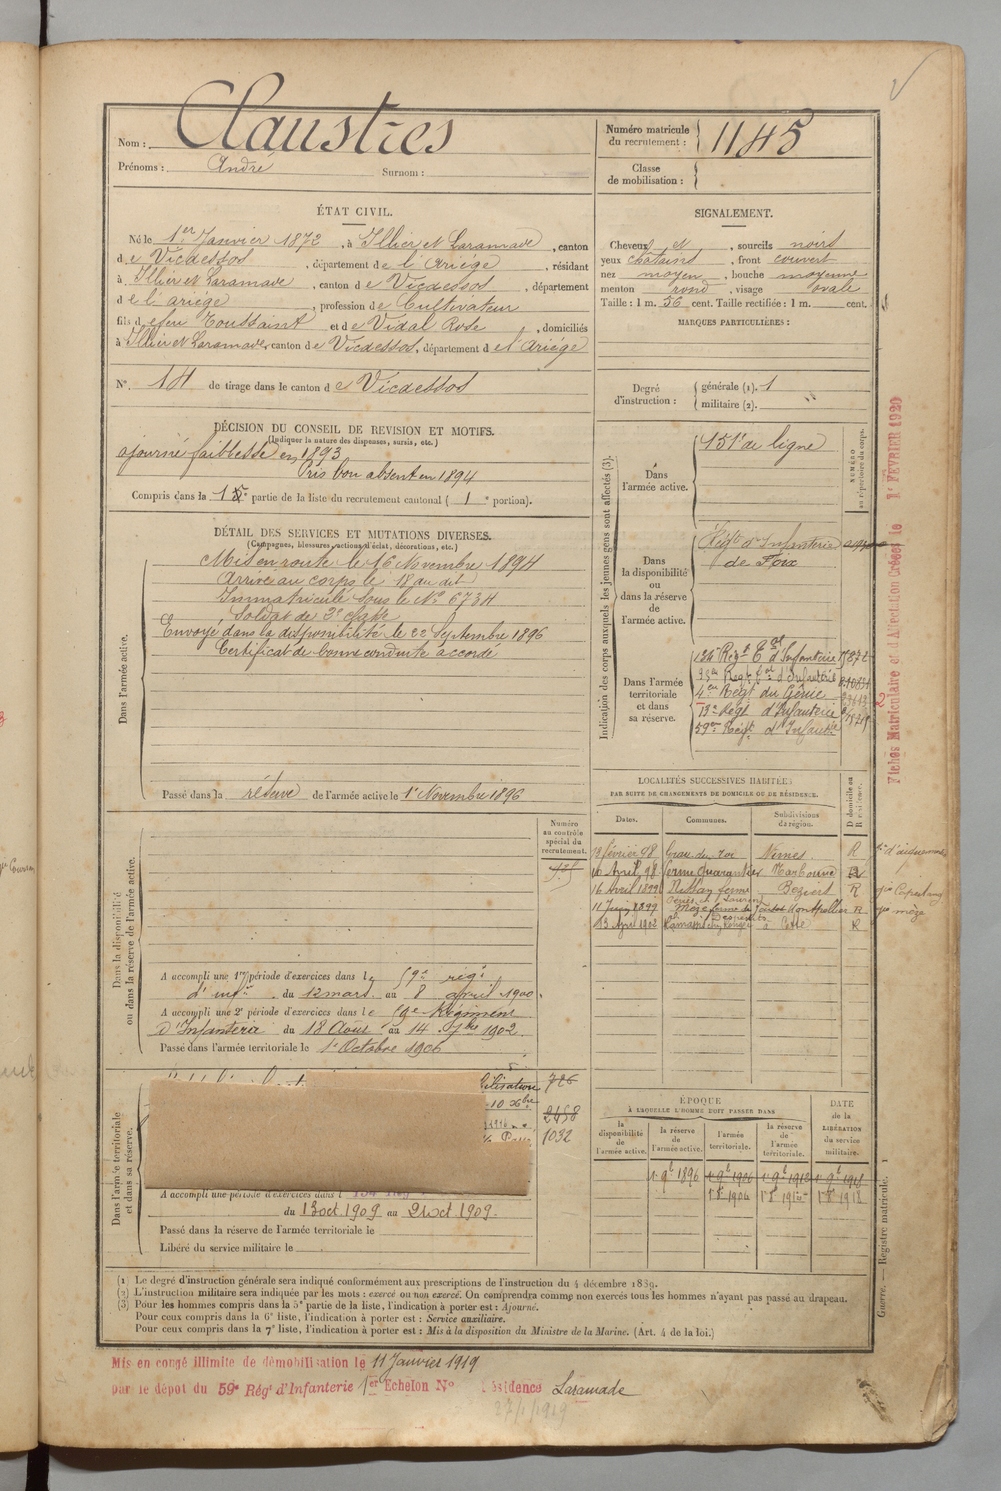 Nom : Claustres
Prénoms : André Surnom :
Numéro matricule du recrutement : 1145
Classe de mobilisation :
ÉTAT CIVIL.
Né le 1er Janvier 1872, à Illier et Laramade, canton
de Vicdessos, département de l'Ariège, résidant
à Illier et Laramade, canton de Vicdessos, département
de l'ariège, profession de Cultivateur
fils de feu Toussaint et de Vidal Rose, domiciliés
à Illier et Laramade, canton de Vicdessos, département de l'Ariège
N° 14 de tirage dans le canton de Vicdessos
SIGNALEMENT.
Cheveux et, sourcils noirs
yeux chatains, front couvert
nez moyen, bouche moyenne
menton rond, visage ovale
Taille : 1 m. 56 cent. Taille rectifiée : 1 m. cent.
MARQUES PARTICULIÈRES :
Degré d'instruction : générale (1). 1
militaire (2).
DÉCISION DU CONSEIL DE REVISION ET MOTIFS.
(Indiquer la nature des dispenses, sursis, etc.)
ajourné faiblesse en 1893
Pris bon absent en 1894
Compris dans la 1e partie de la liste du recrutement cantonal ( 1 e portion).
DÉTAIL DES SERVICES ET MUTATIONS DIVERSES.
(Campagnes, blessures, actions d'éclat, décorations, etc.)
Dans l'armée active.
Mis en route le 16 Novembre 1894
Arrivé au corps le 18 du dit
Immatriculé sous le No 6734
Soldat de 2e classe
Envoyé dans la disponibilité le 22 Septembre 1896
Certificat de bonne conduite accordé
Passé dans la réserve de l'armée active le 1er Novembre 1896
Indication des corps auxquels les jeunes gens sont affectés (3).
NUMÉRO au répertoire du corps.
Dans l'armée active.
151e de ligne
Dans la disponibilité ou dans la réserve de l'armée active.
Régt d'Infanterie
de Foix
Dans l'armée territoriale et dans sa réserve.
134e Régt Tal d'Infanterie
Régt Tal d'Infanterie
4e Régt du Génie
13e Régt d'Infanterie
59e Régt d'Infanterie
LOCALITÉS SUCCESSIVES HABITÉES
PAR SUITE DE CHANGEMENTS DE DOMICILE OU DE RÉSIDENCE.
Dates. Communes. Subdivisions de région. D domicile ou R résidence.
18 février 98 Grau du roi Nimes R
16 Avril 98 Narbonne
16 Avril 1899 Béziers R
11 Juin 1899 Montpellier R
13 Avril 1902 Cette R
Numéro au contrôle spécial du recrutement.
Dans la disponibilité ou dans la réserve de l'armée active.
A accompli une 1re période d'exercices dans le 59e régt
d'infie du 12 mars au 8 avril 1900
A accompli une 2e période d'exercices dans le 59e Régiment
d'Infanterie du 18 Août au 14 7bre 1902
Passé dans l'armée territoriale le 1er Octobre 1906
Dans l'armée territoriale et dans sa réserve.
726
2458
1032
A accompli une période d'exercices dans l
du 13 oct. 1909 au 21 oct 1909
Passé dans la réserve de l'armée territoriale le
Libéré du service militaire le
ÉPOQUE
À LAQUELLE L'HOMME DOIT PASSER DANS
DATE de la LIBÉRATION du service militaire.
la disponibilité de l'armée active. la réserve de l'armée active. l'armée territoriale. la réserve de l'armée territoriale.
(1) Le degré d'instruction générale sera indiqué conformément aux prescriptions de l'instruction du 4 décembre 1889.
(2) L'instruction militaire sera indiquée par les mots : exercé ou non exercé. On comprendra comme non exercés tous les hommes n'ayant pas passé au drapeau.
(3) Pour les hommes compris dans la 5e partie de la liste, l'indication à porter est : Ajourné.
Pour ceux compris dans la 6e liste, l'indication à porter est : Service auxiliaire.
Pour ceux compris dans la 7e liste, l'indication à porter est : Mis à la disposition du Ministre de la Marine. (Art. 4 de la loi.)
Mis en congé illimité de démobilisation le 11 Janvier 1919
par le dépôt du 59e Régt d'Infanterie 1er Echelon No résidence Laramade
Fiches Matriculaire et d'Affectation Créées le 1er FEVRIER 1920
Guerre. — Registre matricule. 1